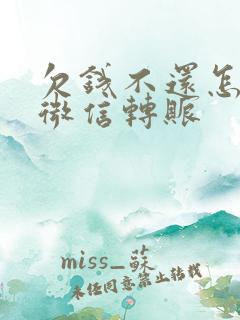 欠錢不還怎
微信轉賬
miss_蘇
未任同意禁止转载